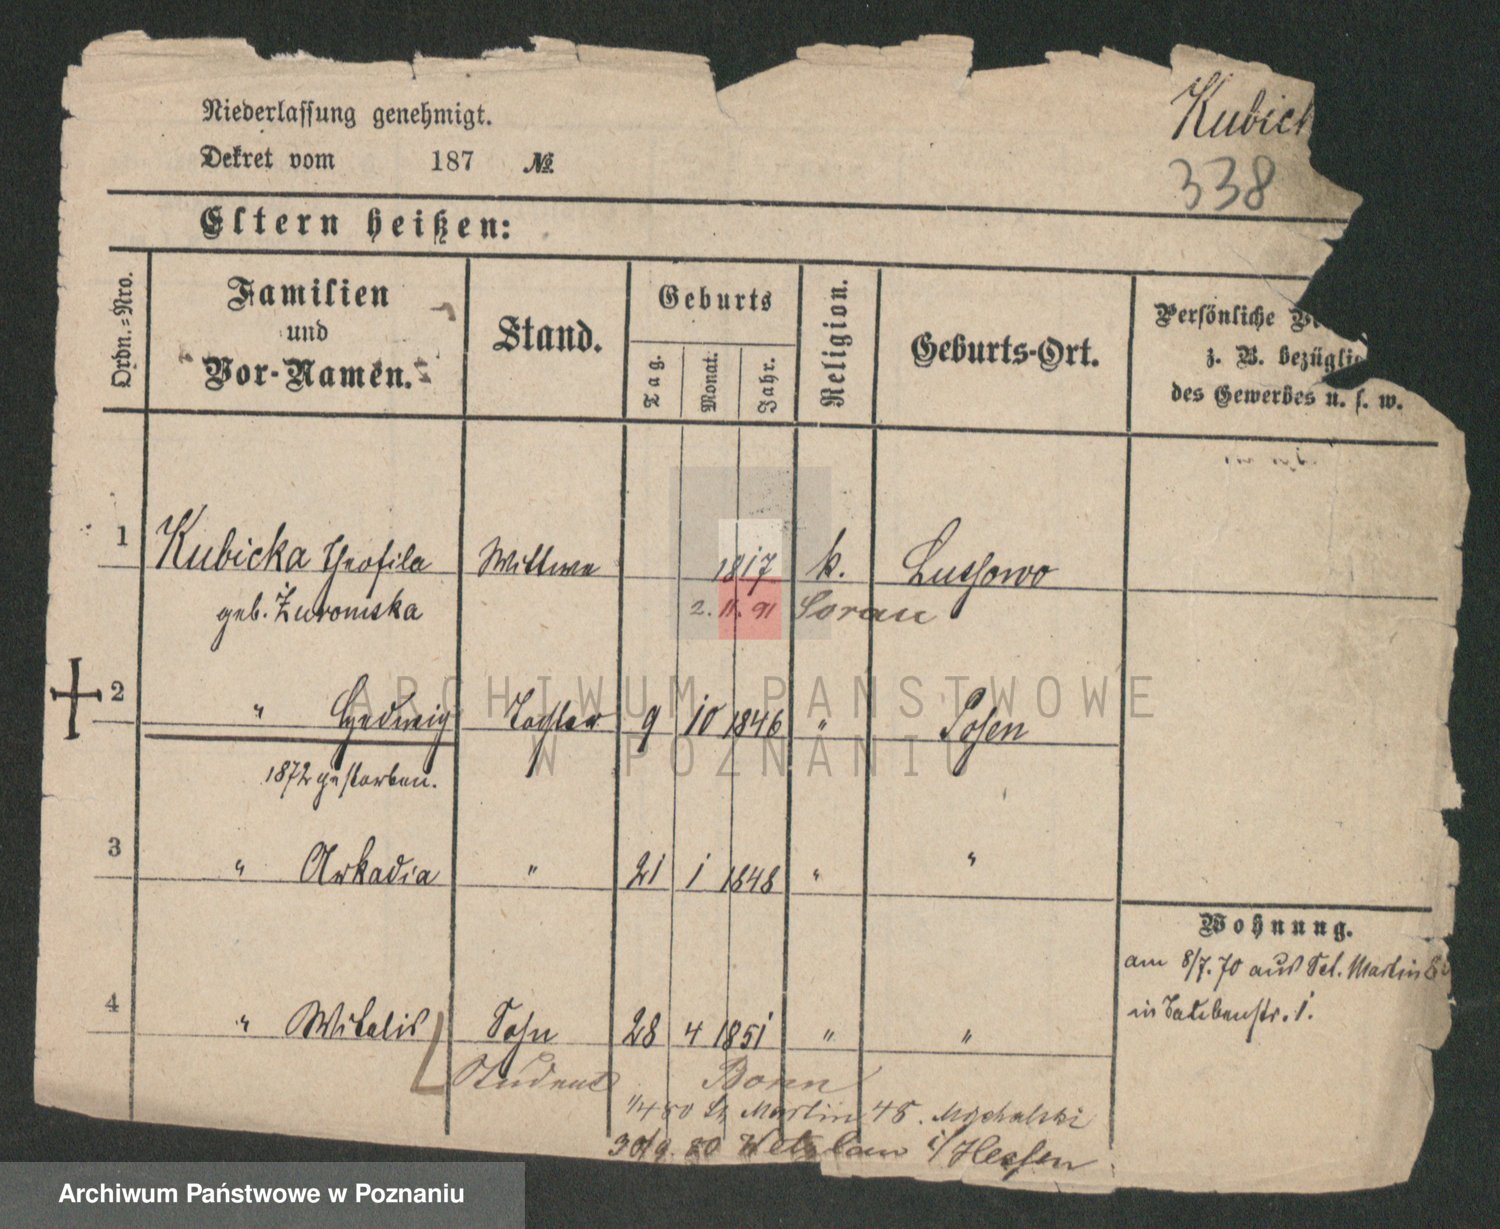 Niederlassung genehmigt.
Kubick
Dekret vom 187 №
338
Eltern heißen:
Ordn.-Nro.
Familien
und
Vor-Namen.
Stand.
Geburts
Tag.
Monat.
Jahr.
Religion.
Geburts-Ort.
Persönliche
z. B. bezüglich
des Gewerbes u. s. w.
1 Kubicka Theofila Wittwe 1817 k. Lussowo
geb. Żuromska 2. 11. 91 Sorau
2 " Hedwig Tochter 9 10 1846 " Posen
1872 gestorben.
3 " Arkadia " 21 1 1848 " "
Wohnung.
am 8/7. 70 aus Sct. Martin
in Taubenstr. 1.
4 " Witalis Sohn 28 4 1851 " "
Student Bonn
1/4 80 St Martin 45. Mychalski
30/9. 80 Wetzlau i/Hessen
ARCHIWUM PAŃSTWOWE
W POZNANIU
Archiwum Państwowe w Poznaniu